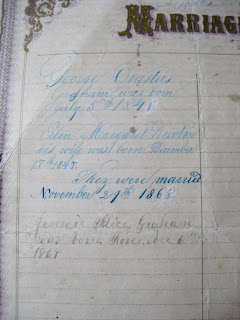 MARRIAG
George
Graham was born
July 5th 1848
Margaret
his wife was born December
17th 1847.
They were married
November 29th 1868
Jennie Alice Graham
was born November 6th
1869